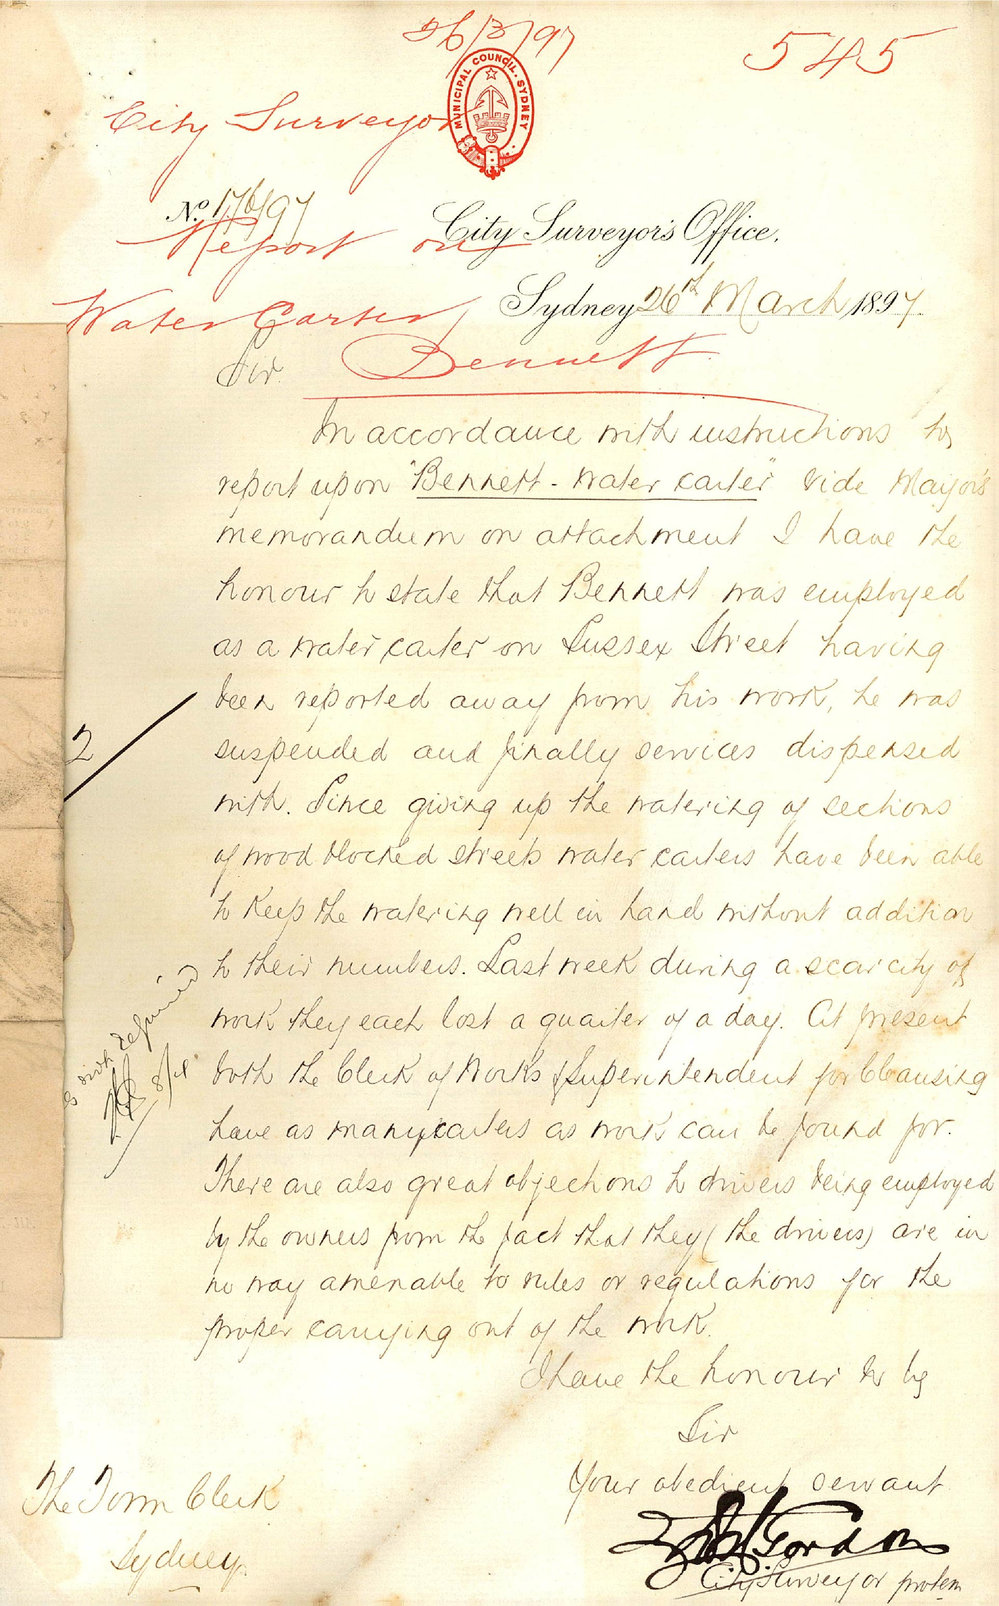 26/3/97
545
MUNICIPAL COUNCIL. SYDNEY
City Surveyor
No. 176/97
Report on
City Surveyor's Office,
Water Carter
Sydney 26th March 1897.
Bennett
Sir
In accordance with instructions to
report upon "Bennett - water carter" vide Mayor's
memorandum on attachment I have the
honour to state that Bennett was employed
as a water carter on Sussex Street having
been reported away from his work, he was
suspended and finally services dispensed
with. Since giving up the watering of sections
of wood blocked streets water carters have been able
to keep the watering well in hand without addition
to their numbers. Last week during a scarcity of
work they each lost a quarter of a day. At present
both the Clerk of Works & Superintendent for Cleansing
have as many carters as work can be found for.
There are also great objections to drivers being employed
by the owners from the fact that they (the drivers) are in
no way amenable to rules or regulations for the
proper carrying out of the work.
I have the honour to be
Sir
Your obedient servant
Gordon
City Surveyor protem
The Town Clerk
Sydney
2
8/4